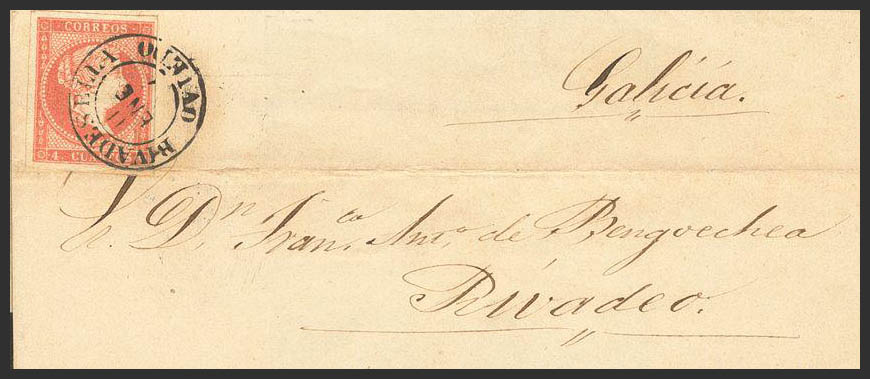 CORREOS
4 CU
RIVADESELLA OVIEDO
11
ENE
Galicia.
Sr. Dn. Franco. Anto. de Bengoechea
Rivadeo.